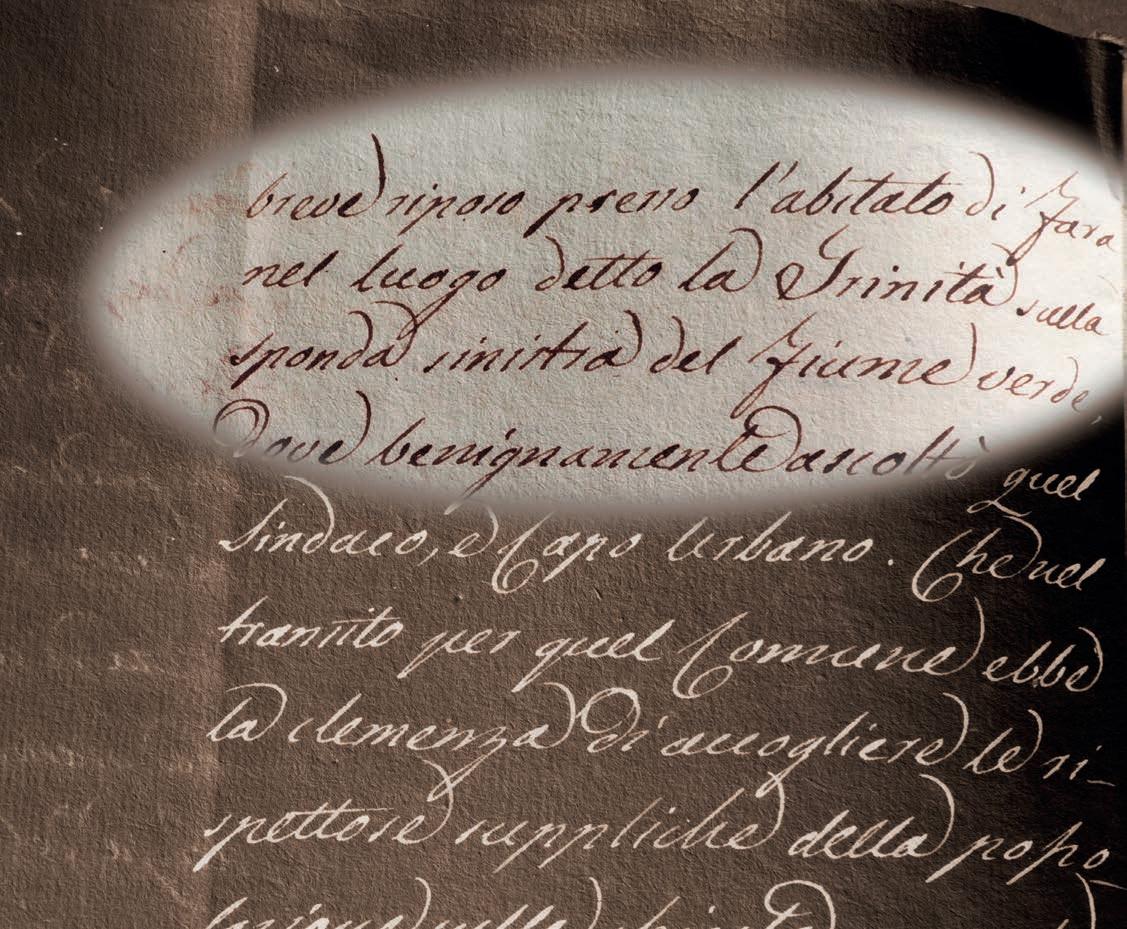 breve riposo presso l'abitato di Fara
nel luogo detto la Trinità sulla
sponda sinistra del Fiume verde,
Dove benignamente ascoltò quel
Sindaco, e Capo Urbano. Che nel
transito per quel Comune ebbe
la clemenza di accogliere le ri-
spettose suppliche della popo-
lazione sulla